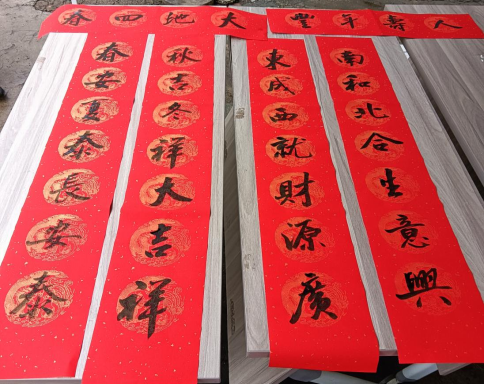 人壽年豐
大地回春
南和北合生意興
東成西就財源廣
秋吉冬祥大吉祥
春安夏泰長安泰